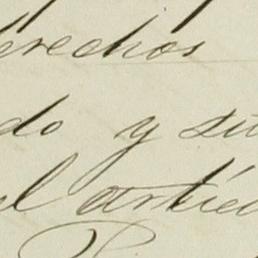 derechos
do y su
el artícu